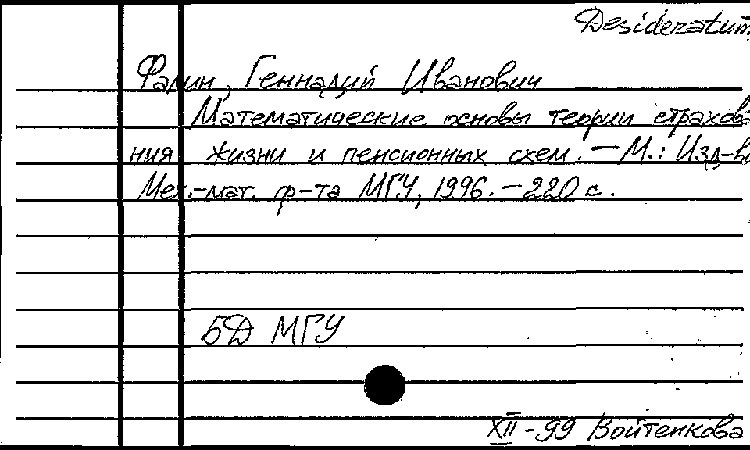 Desideratum
Фалин, Геннадий Иванович
Математические основы теории страхова
ния жизни и пенсионных схем. — М.: Изд-во
Мех.-мат. ф-та МГУ, 1996. — 220 с.
БД МГУ
XII - 99 Войтенкова